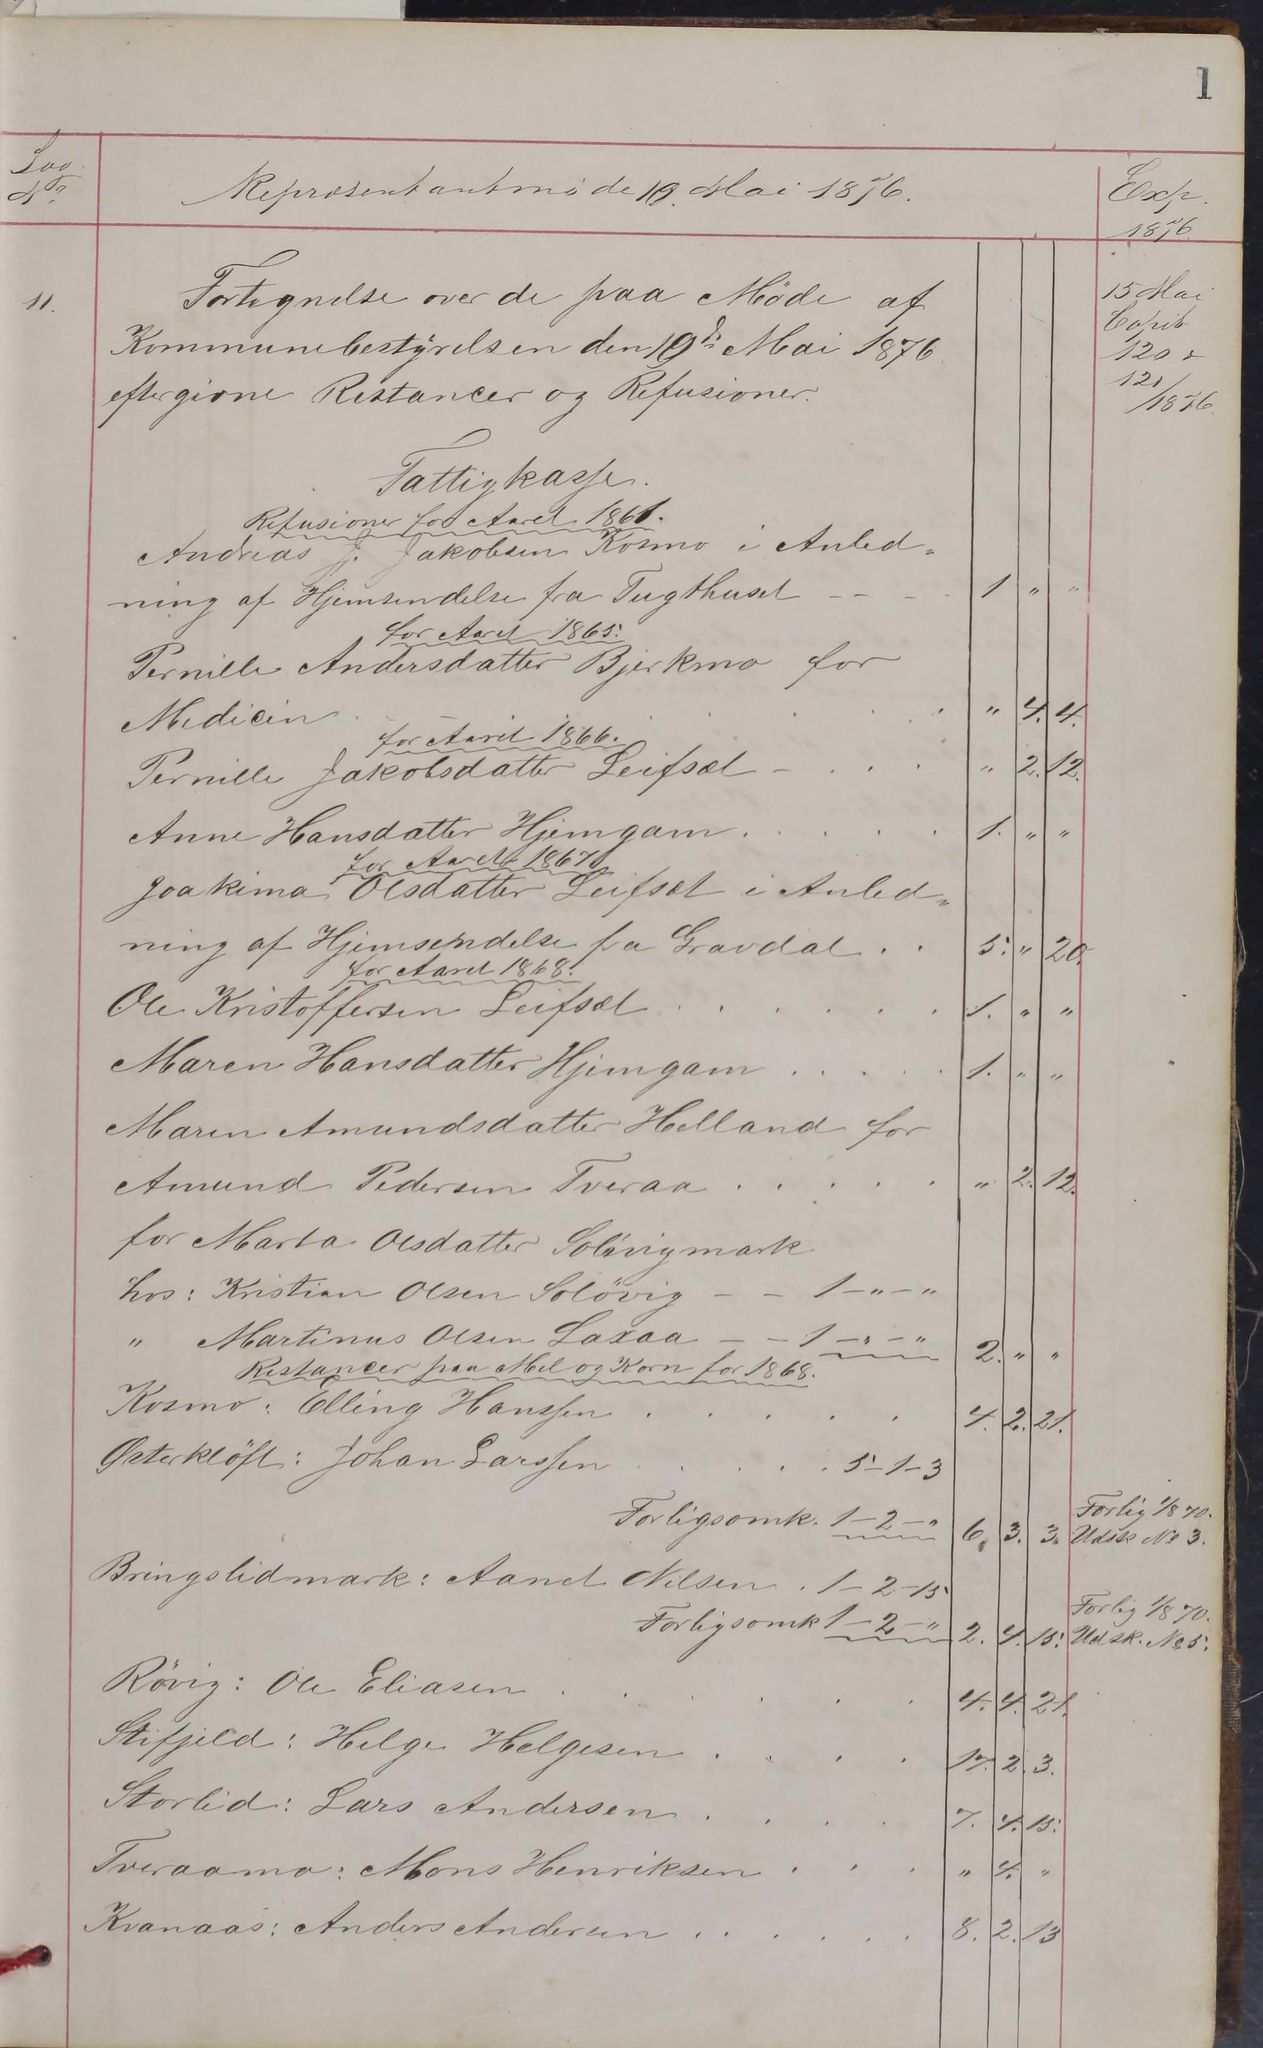 1
Sag
No.
Repræsentantmøde 10. Mai 1876.
Exp.
1876.
11.
Fortegnelse over de paa Møde af
Kommunebestyrelsen den 10de Mai 1876
eftergivne Restancer og Refusioner.
15 Mai
Copib
120 &
121/
1876.
Fattigkasse.
Refusioner for Aaret 1861.
Andreas J. Jakobsen Kosmo i Anled„
ning af Hjemsendelse fra Tugthuset - - - 1 „ „
for Aaret 1865.
Pernille Andersdatter Bjerkmo for
Medicin . . . . „ 4. 4.
for Aaret 1866.
Pernille Jakobsdatter Leifset - . . . „ 2. 12.
Anne Hansdatter Hjemgam . . . . . 1. „ „
for Aaret 1867.
Joakima Olsdatter Leifset i Anled„
ning af Hjemsendelse fra Gravdal . . 5. „ 20.
for Aaret 1868.
Ole Kristoffersen Leifset . . . . . . 1. „ „
Maren Hansdatter Hjemgam . . . . . 1. „ „
Maren Amundsdatter Helland for
Amund Pedersen Tveraa . . . . . „ 2. 12.
for Marta Olsdatter Solövigmark
hos: Kristian Olsen Solövig - - 1 - „ - „
„ Martinus Olsen Laxaa - - 1 - „ - „ 2. „ „
Restancer paa Mel og Korn for 1868.
Kosmo: Elling Hanssen . . . . . . 4. 2. 21.
Østerklöft: Johan Larssen . . . . 5 - 1 - 3
Forligsomk. 1 - 2 - „ 6. 3. 3. Forlig 1/8 70.
Udsk No 3.
Bringslidmark: Aanet Nilsen . 1 - 2 - 15
Forligsomk 1 - 2 - „ 2. 4. 15. Forlig 1/8 70.
Udsk. No 5.
Rövig: Ole Eliasen . . . . . . 4. 4. 21.
Stifjeld: Helge Helgesen . . . . 17. 2. 3.
Storlid: Lars Andersen . . . . 7. 4. 15.
Tveraamo: Mons Henriksen . . . „ 4. „
Kvanaas: Anders Andersen . . . . . . 8. 2. 13